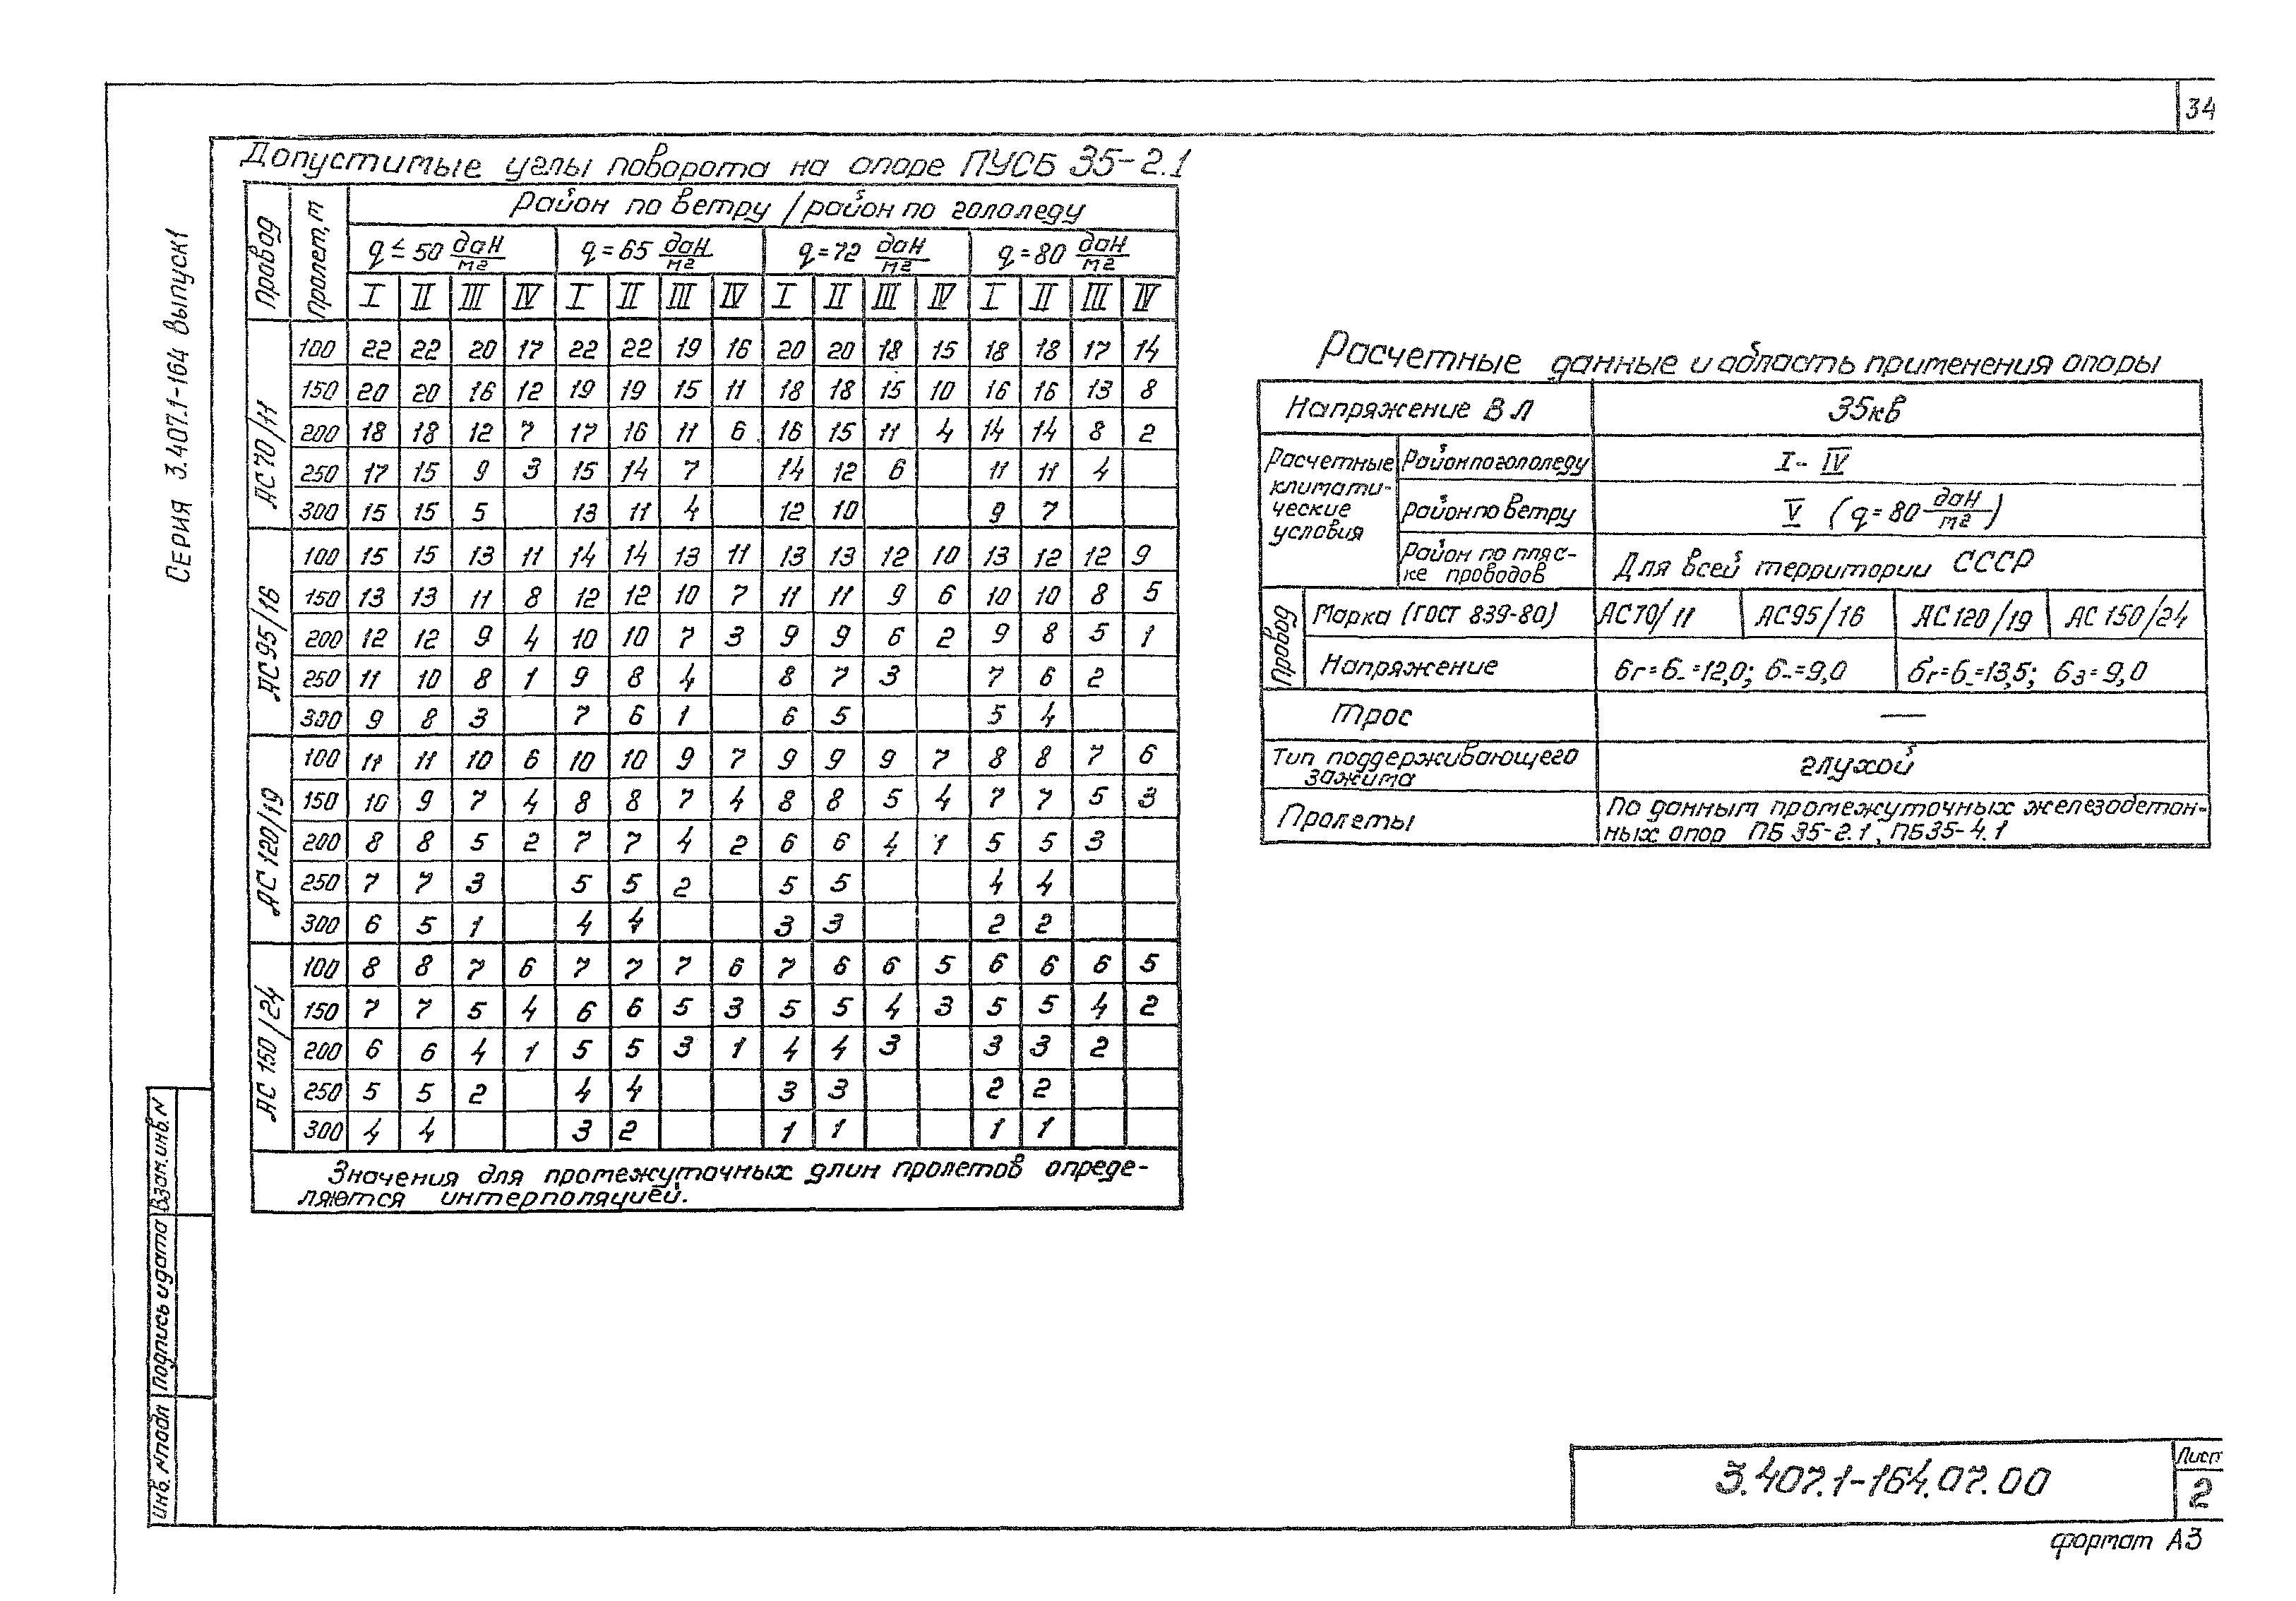 34
Серия 3.407.1-164 Выпуск 1
Допустимые углы поворота на опоре ПУСБ 35-2.1
Провод Пролет, м Район по ветру / район по гололеду
q ≤ 50 даН/м2 q=65 даН/м2 q=72 даН/м2 q=80 даН/м2
I II III IV I II III IV I II III IV I II III IV
АС 70/11
100 22 22 20 17 22 22 19 16 20 20 18 15 18 18 17 14
150 20 20 16 12 19 19 15 11 18 18 15 10 16 16 13 8
200 18 18 12 7 17 16 11 6 16 15 11 4 14 14 8 2
250 17 15 9 3 15 14 7 14 12 6 11 11 4
300 15 15 5 13 11 4 12 10 9 7
АС 95/16
100 15 15 13 11 14 14 13 11 13 13 12 10 13 12 12 9
150 13 13 11 8 12 12 10 7 11 11 9 6 10 10 8 5
200 12 12 9 4 10 10 7 3 9 9 6 2 9 8 5 1
250 11 10 8 1 9 8 4 8 7 3 7 6 2
300 9 8 3 7 6 1 6 5 5 4
АС 120/19
100 11 11 10 6 10 10 9 7 9 9 9 7 8 8 7 6
150 10 9 7 4 8 8 7 4 8 8 5 4 7 7 5 3
200 8 8 5 2 7 7 4 2 6 6 4 1 5 5 3
250 7 7 3 5 5 2 5 5 4 4
300 6 5 1 4 4 3 3 2 2
АС 150/24
100 8 8 7 6 7 7 7 6 7 6 6 5 6 6 6 5
150 7 7 5 4 6 6 5 3 5 5 4 3 5 5 4 2
200 6 6 4 1 5 5 3 1 4 4 3 3 3 2
250 5 5 2 4 4 3 3 2 2
300 4 4 3 2 1 1 1 1
Значения для промежуточных длин пролетов опреде-
ляются интерполяцией.
Расчетные данные и область применения опоры
Напряжение ВЛ 35кВ
Расчетные климати-ческие условия
Район по гололеду I-IV
Район по ветру V (q=80 даН/м2)
Район по пляс-ке проводов Для всей территории СССР
Провод
Марка (ГОСТ 839-80) АС70/11 АС95/16 АС120/19 АС 150/24
Напряжение бг=б_=12,0; б_=9,0 бг=б_=13,5; бз=9,0
Трос —
Тип поддерживающего зажима глухой
Пролеты По данным промежуточных железобетон-
ных опор ПБ 35-2.1, ПБ35-4.1
Взам.инв.N
Подпись и дата
Инв. N подл
3.407.1-164.07.00
Лист
2
формат А3